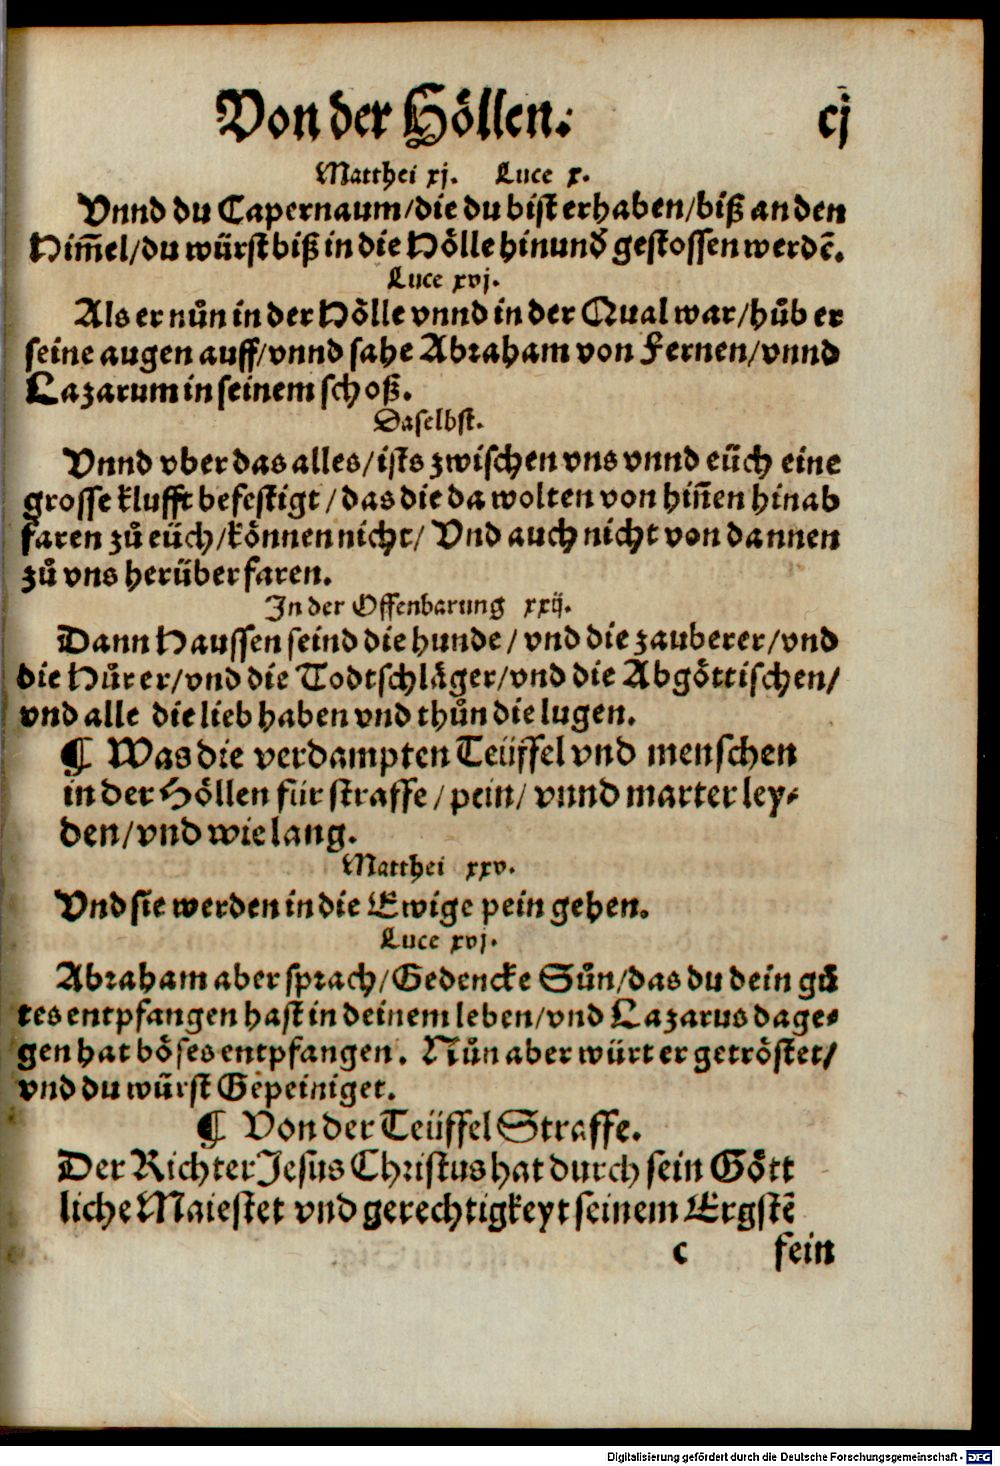 Von der Höllen. cj
Matthei xj. Luce x.
Vnnd du Capernaum/die du bist erhaben/biß an den
Him̃el/du würst biß in die Hölle hinund̃ gestossen werdẽ.
Luce xvj.
Als er nůn in der Hölle vnnd in der Qual war/hůb er
seine augen auff/vnnd sahe Abraham von Fernen/vnnd
Lazarum in seinem schoß.
Daselbst.
Vnnd vber das alles/ists zwischen vns vnnd eüch eine
grosse klufft befestigt/das die da wolten von hiñen hinab
faren zů eüch/können nicht/ Vnd auch nicht von dannen
zů vns herüber faren.
In der Offenbarung xxij.
Dann Haussen seind die hunde/ vnd die zauberer/vnd
die Hůrer/vnd die Todtschläger/vnd die Abgöttischen/
vnd alle die lieb haben vnd thůn die lugen.
¶ Was die verdampten Teüffel vnd menschen
in der Höllen für straffe/ pein/ vnnd marter ley⸗
den/vnd wie lang.
Matthei xxv.
Vnd sie werden in die Ewige pein gehen.
Luce xvj.
Abraham aber sprach/Gedencke Sůn/das du dein gů
tes entpfangen hast in deinem leben/vnd Lazarus dage⸗
gen hat böses entpfangen. Nůn aber würt er getröstet/
vnd du würst Gepeiniget.
¶ Von der Teüffel Straffe.
Der Richter Jesus Christus hat durch sein Gött
liche Maiestet vnd gerechtigkeyt seinem Ergstẽ
c fein
Digitalisierung gefördert durch die Deutsche Forschungsgemeinschaft - DFG